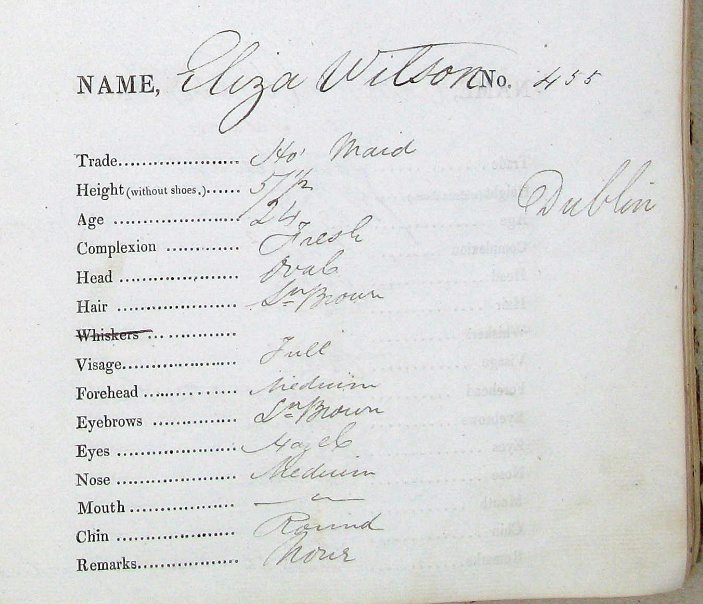 NAME, Eliza Wilson No. 455
Trade..................... Ho' Maid
Height (without shoes.)...... 5/1½
Dublin
Age .................... 24
Complexion ............ Fresh
Head ..................... Oval
Hair ..................... Brown
Whiskers ...............
Visage.................... Full
Forehead ................ Medium
Eyebrows ............... Brown
Eyes ..................... Hazel
Nose ..................... Medium
Mouth .................. — " —
Chin ..................... Round
Remarks.................. None